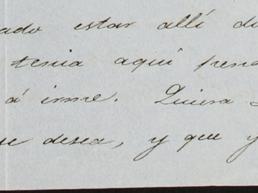 ado estar allí di
tenia aquí pend
á irme. Quiera
se desea, y que y